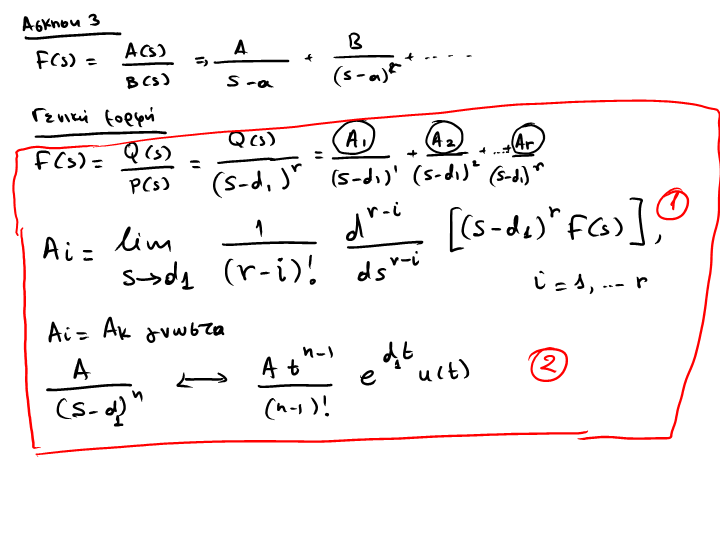 Άσκηση 3
F(s) = A(s)/B(s) => A/(s-a) + B/(s-a)² + .....
Γενική μορφή
F(s) = Q(s)/P(s) = Q(s)/(s-d₁)^r = A₁/(s-d₁)¹ + A₂/(s-d₁)² + ...+ Ar/(s-d₁)^r
Ai = lim s→d₁ 1/(r-i)! d^(r-i)/ds^(r-i) [(s-d₁)^r F(s)], ①
i = 1, ... r
Ai = Ak γνωστα
A/(s-d₁)^n ↔ A t^(n-1)/(n-1)! e^(d₁t) u(t) ②